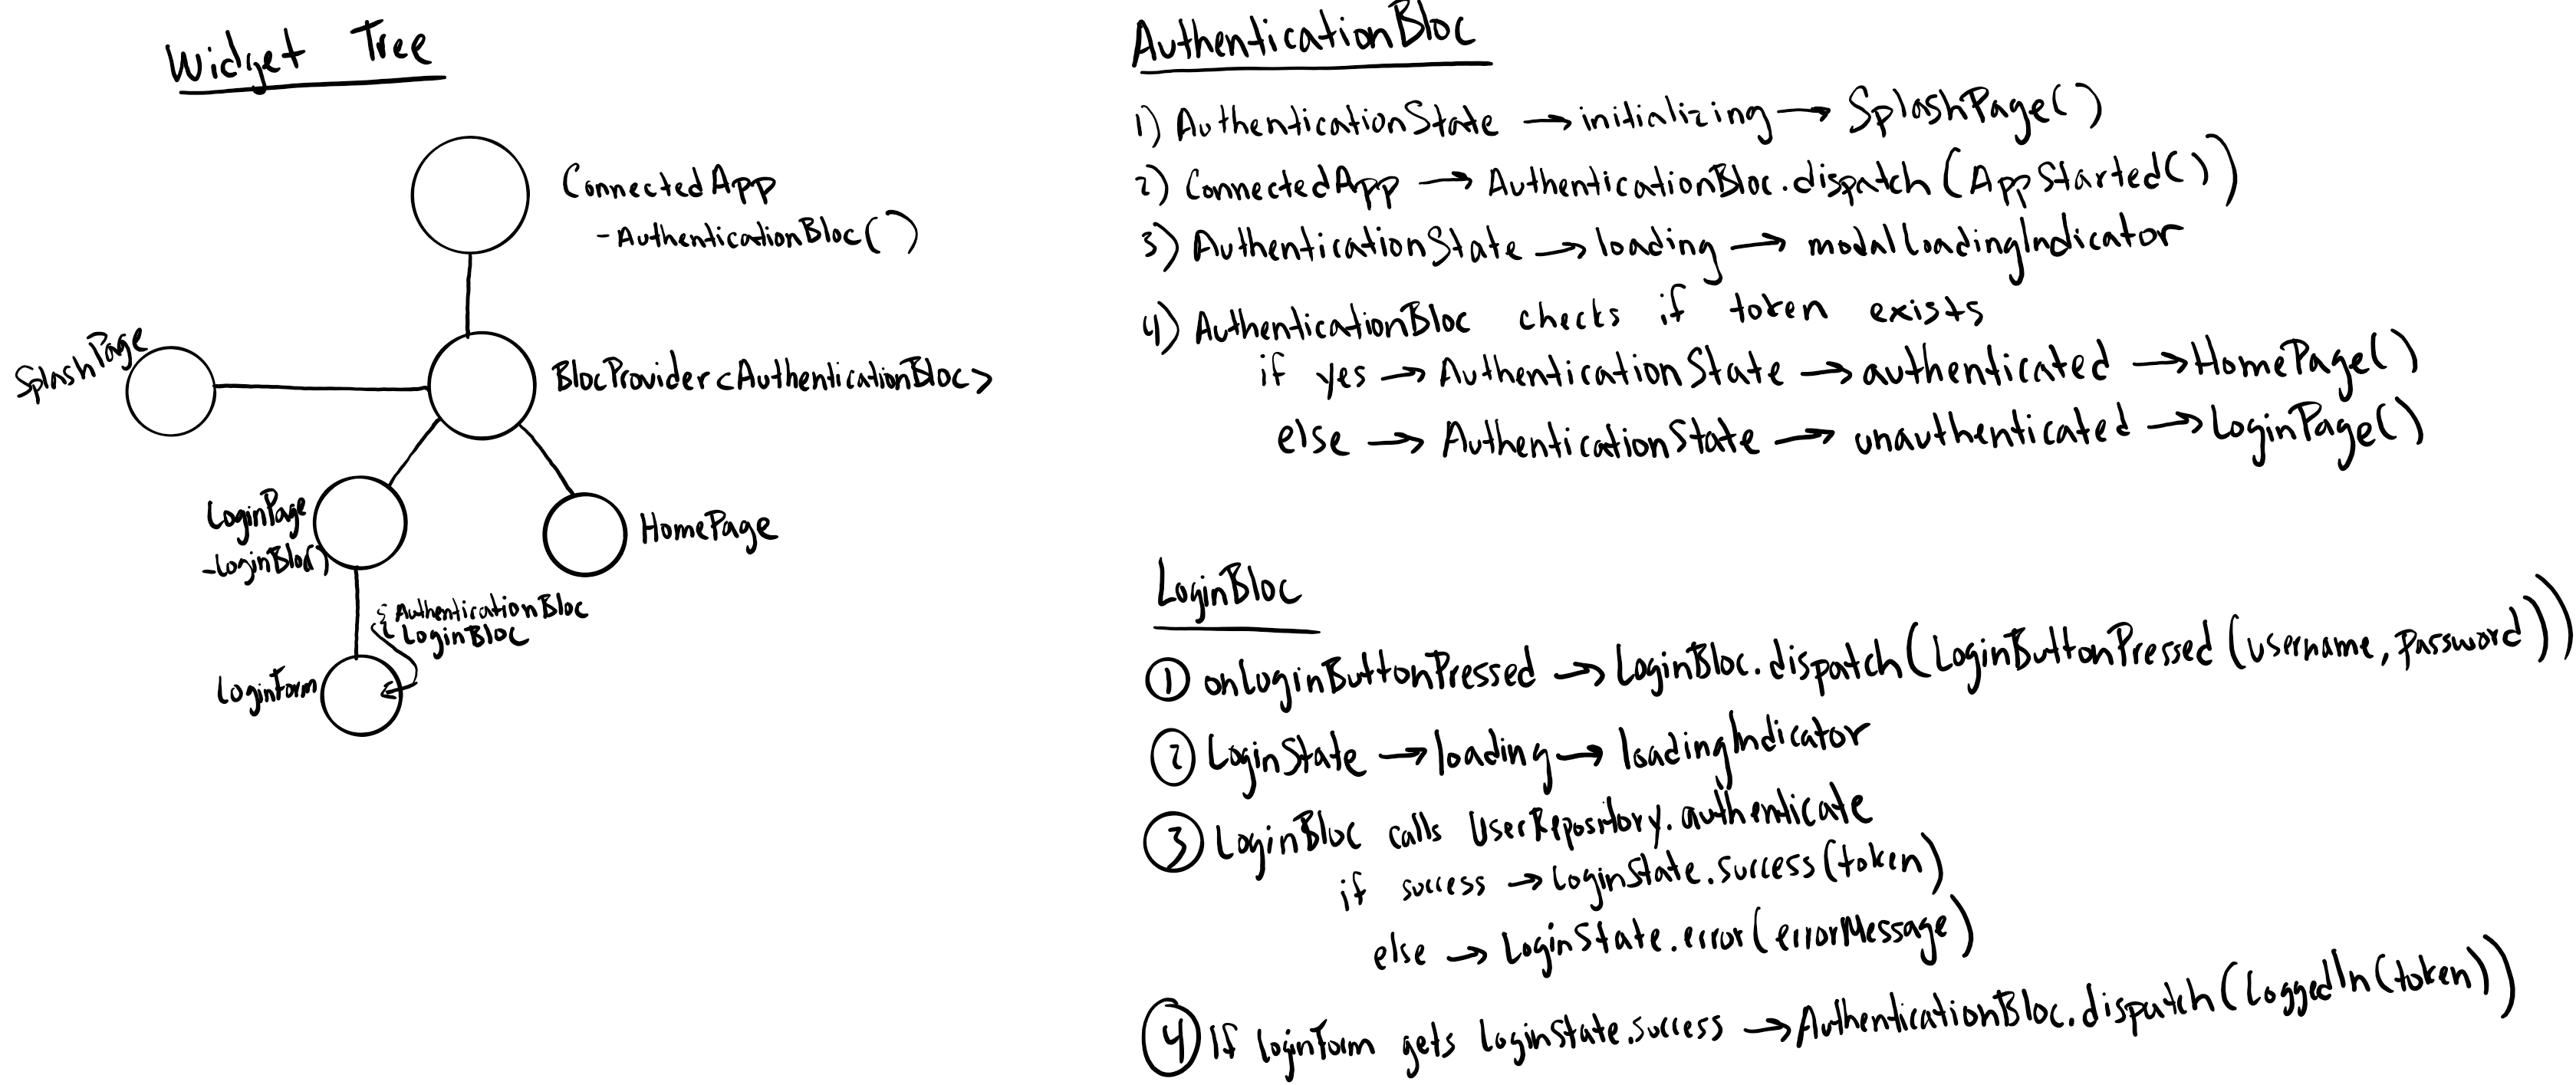 Widget Tree
ConnectedApp
- AuthenticationBloc()
SplashPage
BlocProvider<AuthenticationBloc>
LoginPage
- LoginBloc()
HomePage
{ AuthenticationBloc
LoginBloc
LoginForm
AuthenticationBloc
1) AuthenticationState → initializing → SplashPage()
2) ConnectedApp → AuthenticationBloc.dispatch(AppStarted())
3) AuthenticationState → loading → modalLoadingIndicator
4) AuthenticationBloc checks if token exists
if yes → AuthenticationState → authenticated → HomePage()
else → AuthenticationState → unauthenticated → LoginPage()
LoginBloc
① onLoginButtonPressed → LoginBloc.dispatch(LoginButtonPressed(username, password))
② LoginState → loading → loadingIndicator
③ LoginBloc calls UserRepository.authenticate
if success → LoginState.success(token)
else → LoginState.error(errorMessage)
④ If loginForm gets loginState.success → AuthenticationBloc.dispatch(LoggedIn(token))